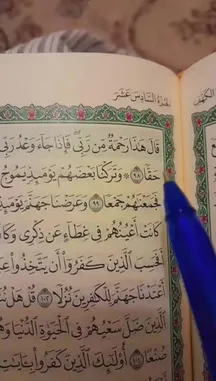 الجزء السادس عشر
الكهف
قَالَ هَٰذَا رَحْمَةٌ مِّن رَّبِّي ۖ فَإِذَا جَآءَ وَعْدُ رَبِّي
حَقًّا ﴿٩٨﴾ وَتَرَكْنَا بَعْضَهُمْ يَوْمَئِذٍ يَمُوجُ
فَجَمَعْنَٰهُمْ جَمْعًا ﴿٩٩﴾ وَعَرَضْنَا جَهَنَّمَ يَوْمَئِذٍ
كَانَتْ أَعْيُنُهُمْ فِي غِطَآءٍ عَن ذِكْرِي وَكَا
أَفَحَسِبَ ٱلَّذِينَ كَفَرُوٓا۟ أَن يَتَّخِذُوا۟ عِبَا
أَعْتَدْنَا جَهَنَّمَ لِلْكَٰفِرِينَ نُزُلًا ﴿١٠٢﴾ قُلْ هَلْ نُنَ
ٱلَّذِينَ ضَلَّ سَعْيُهُمْ فِي ٱلْحَيَوٰةِ ٱلدُّنْيَا وَهُ
صُنْعًا ﴿١٠٤﴾ أُو۟لَٰٓئِكَ ٱلَّذِينَ كَفَرُوا۟ بِـَٔايَٰتِ